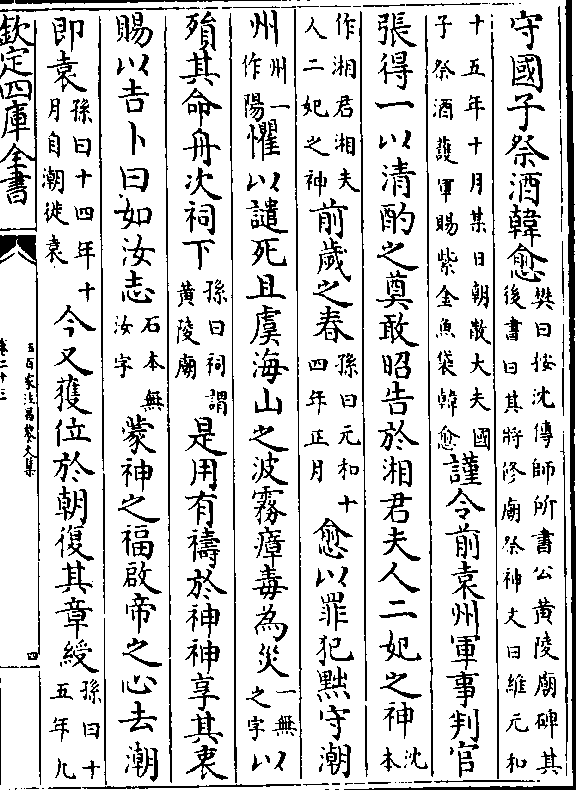 守國子祭酒韓愈樊曰按沈傳師所書公黄陵廟碑其後書曰其將修廟祭神文曰維元和
十五年十月某日朝散大夫國子祭酒護軍賜紫金魚袋韓愈謹令前袁州軍事判官
張得一以清酌之奠敢昭告於湘君夫人二妃之神沈本
作湘君湘夫人二妃之神前歲之春孫曰元和十四年正月愈以罪犯黜守潮
州州一作陽懼以譴死且虞海山之波霧瘴毒為災一無之字以
殞其命舟次祠下孫曰祠謂黄陵廟是用有禱於神神享其衷
賜以吉卜曰如汝志石本無汝字蒙神之福啟帝之心去潮
即袁孫曰十四年十月自潮徙袁今又獲位於朝復其章綬孫曰十五年九
欽定四庫全書
五百家注昌黎文集
卷二十三
四